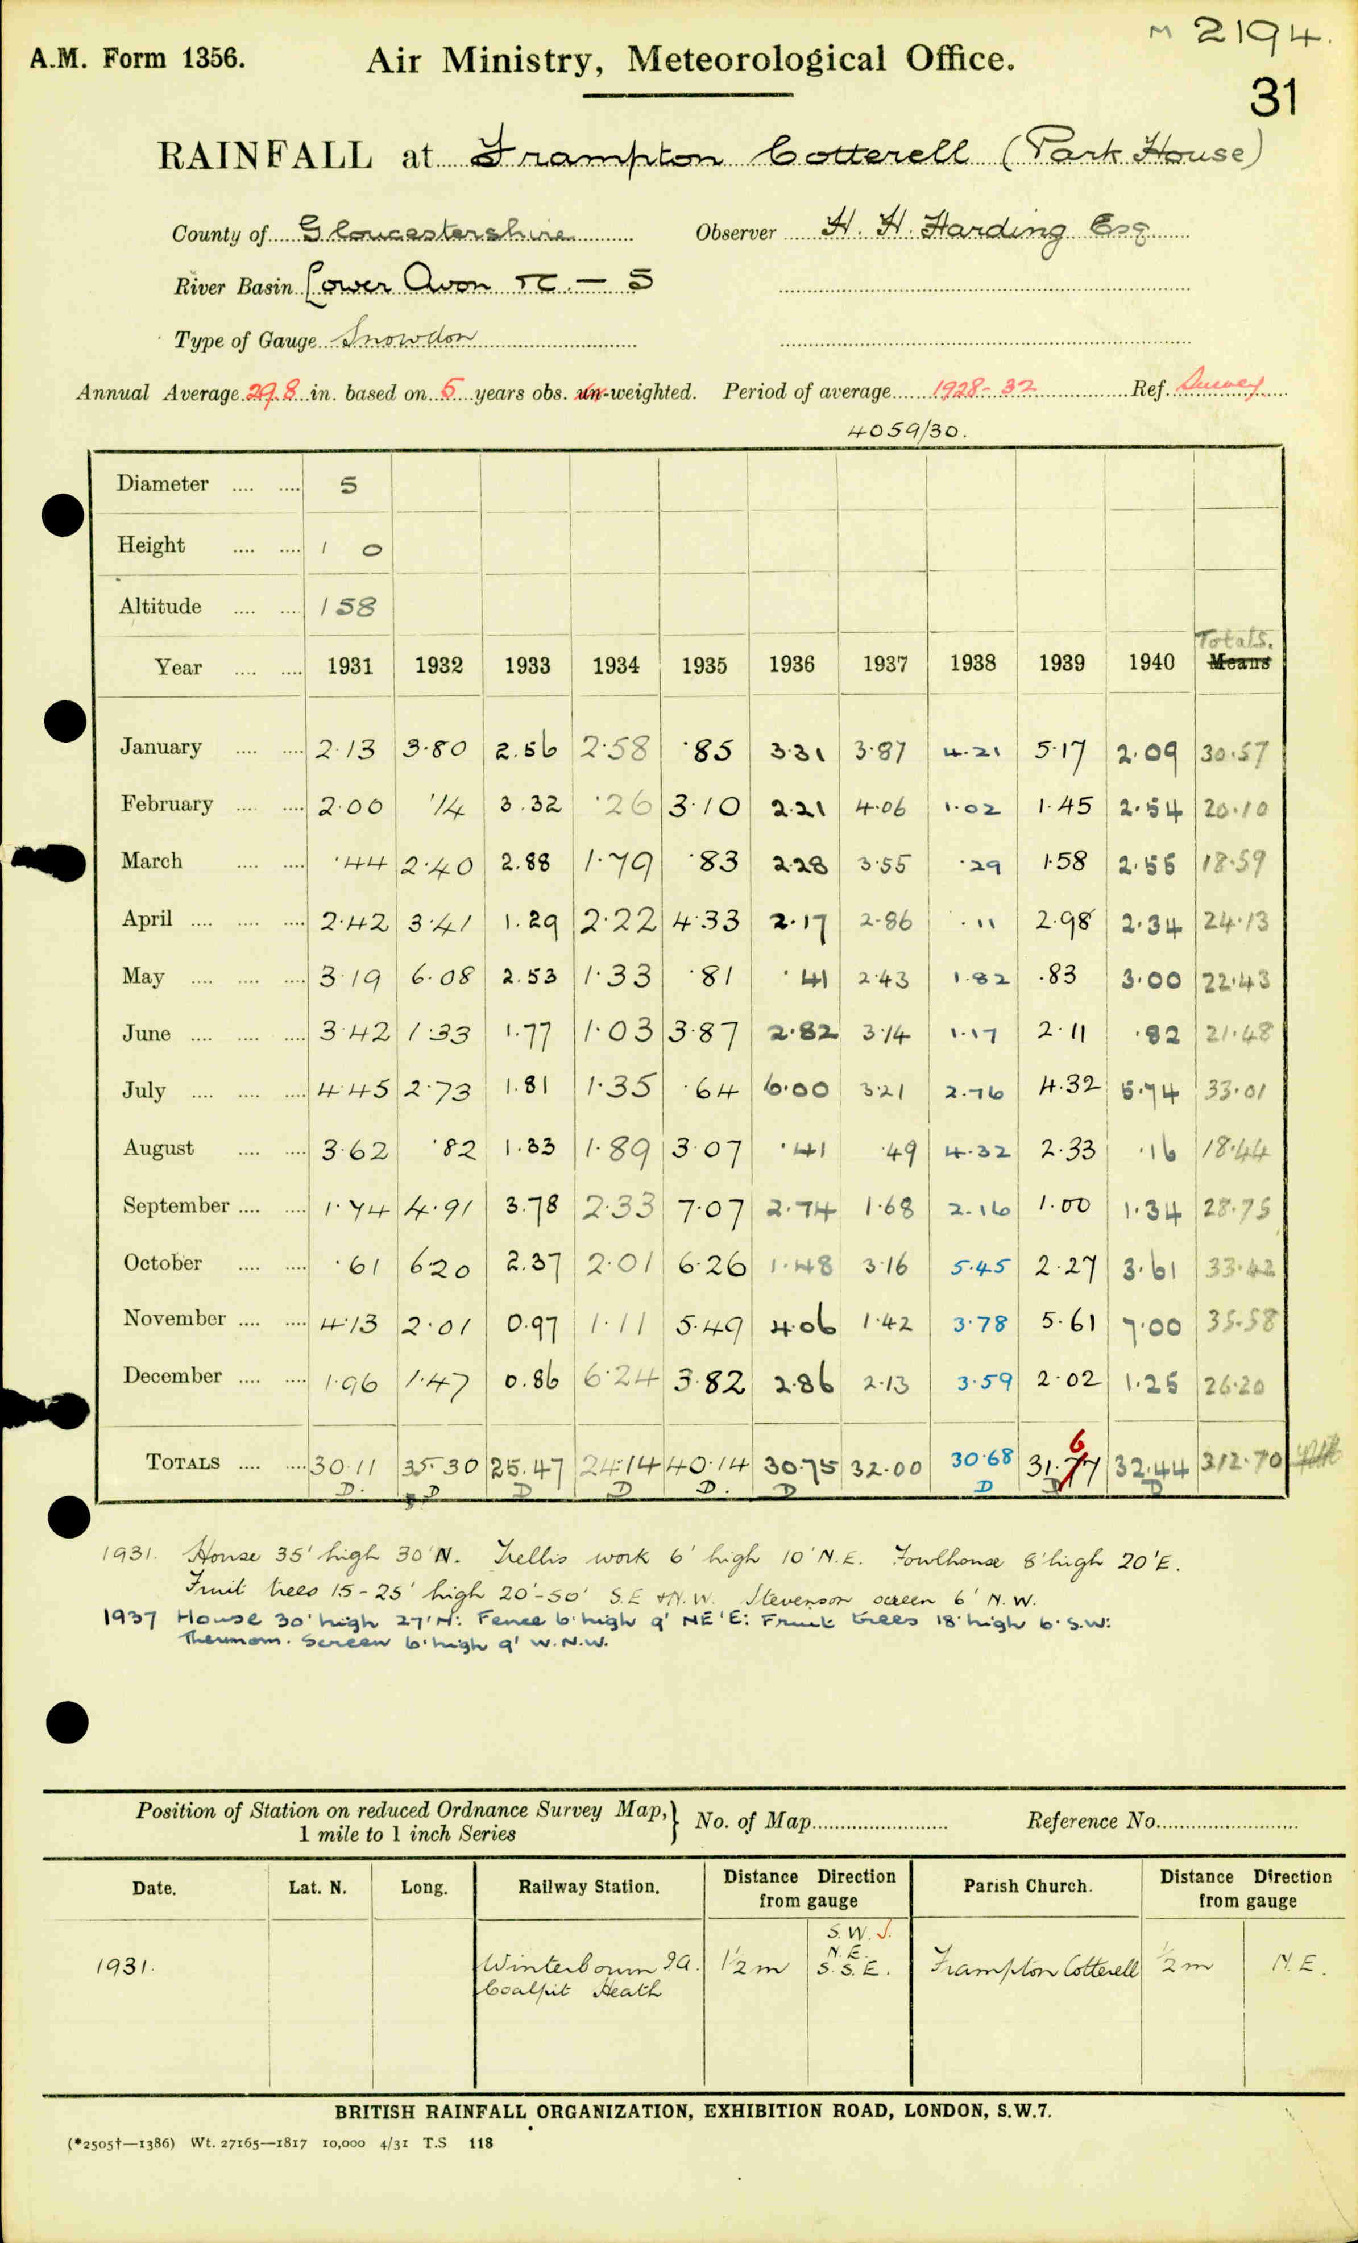 M 2194.
A.M. Form 1356. Air Ministry, Meteorological Office.
31
RAINFALL at Frampton Cotterell (Park House)
County of Gloucestershire Observer H. H. Harding Esq
River Basin Lower Avon &c. — 5
Type of Gauge Snowdon
Annual Average 29.8 in. based on 5 years obs. un-weighted. Period of average 1928-32 Ref. Survey
4059/30.
Diameter .... .... 5
Height .... .... 1 0
Altitude .... .... 158
Totals.
Year .... .... 1931 1932 1933 1934 1935 1936 1937 1938 1939 1940 Means
January .... .... 2.13 3.80 2.56 2.58 .85 3.31 3.87 4.21 5.17 2.09 30.57
February .... .... 2.00 .14 3.32 .26 3.10 2.21 4.06 1.02 1.45 2.54 20.10
March .... .... .44 2.40 2.88 1.79 .83 2.28 3.55 .29 1.58 2.55 18.59
April .... .... .... 2.42 3.41 1.29 2.22 4.33 2.17 2.86 .11 2.98 2.34 24.13
May .... .... .... 3.19 6.08 2.53 1.33 .81 .41 2.43 1.82 .83 3.00 22.43
June .... .... .... 3.42 1.33 1.77 1.03 3.87 2.82 3.14 1.17 2.11 .82 21.48
July .... .... .... 4.45 2.73 1.81 1.35 .64 6.00 3.21 2.76 4.32 5.74 33.01
August .... .... 3.62 .82 1.33 1.89 3.07 .41 .49 4.32 2.33 .16 18.44
September .... .... 1.74 4.91 3.78 2.33 7.07 2.74 1.68 2.16 1.00 1.34 28.75
October .... .... .61 6.20 2.37 2.01 6.26 1.48 3.16 5.45 2.27 3.61 33.42
November .... .... 4.13 2.01 0.97 1.11 5.49 4.06 1.42 3.78 5.61 7.00 35.58
December .... .... 1.96 1.47 0.86 6.24 3.82 2.86 2.13 3.59 2.02 1.25 26.20
6
TOTALS .... .... 30.11 35.30 25.47 24.14 40.14 30.75 32.00 30.68 31.77 32.44 312.70
D. D D D D. D D D D
1931. House 35' high 30' N. Trellis work 6' high 10' N.E. Fowlhouse 8' high 20' E.
Fruit trees 15-25' high 20'-50' S.E & N.W. Stevenson screen 6' N.W.
1937 House 30' high 27' N: Fence 6' high 9' NE'E: Fruit trees 18' high 6' S.W:
Thermom. Screen 6' high 9' W.N.W.
Position of Station on reduced Ordnance Survey Map, } No. of Map Reference No.
1 mile to 1 inch Series
Date. Lat. N. Long. Railway Station. Distance Direction from gauge Parish Church. Distance Direction from gauge
S.W. J.
N.E.
1931. Winterbourn 2a. 1½ m S.S.E. Frampton Cotterell ½ m N.E.
Coalpit Heath
BRITISH RAINFALL ORGANIZATION, EXHIBITION ROAD, LONDON, S.W.7.
(*2505†—1386) Wt. 27165—1817 10,000 4/31 T.S 118